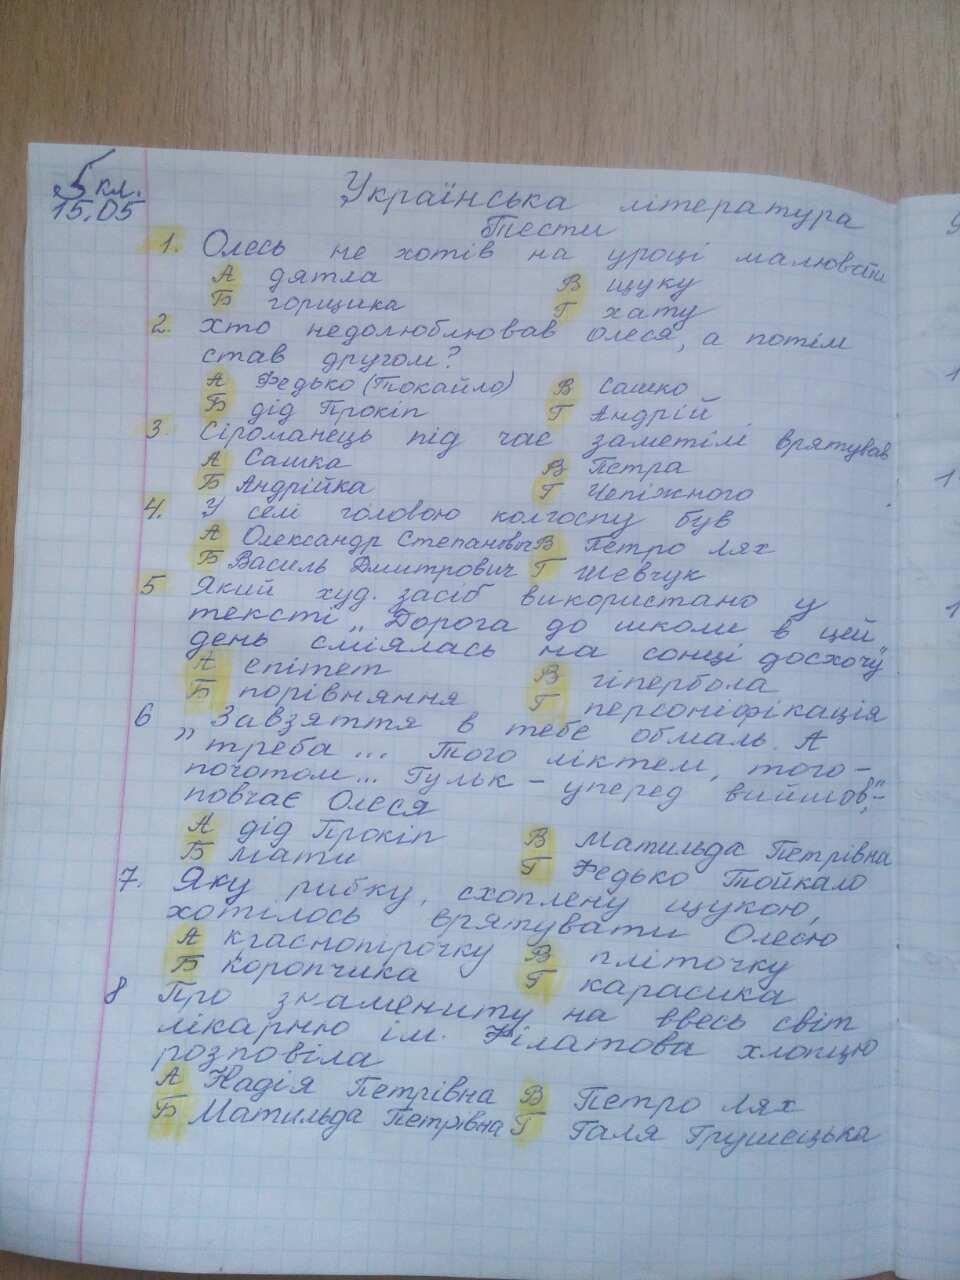 5 кл.
15.05
Українська література
Тести
1. Олесь не хотів на уроці малювати
А дятла В щуку
Б горщика Г хату
2. Хто недолюблював Олеся, а потім
став другом?
А Федько (Токайло) В Сашко
Б дід Прокіп Г Андрій
3. Сіроманець під час заметілі врятував
А Сашка В Петра
Б Андрійка Г Чепіжного
4. У селі головою колгоспу був
А Олександр Степанович В Петро Лях
Б Василь Дмитрович Г Шевчук
5 Який худ. засіб використано у
тексті „Дорога до школи в цей
день сміялась на сонці досхочу"
А епітет В гіпербола
Б порівняння Г персоніфікація
6 „Завзяття в тебе обмаль. А
треба... Того ліктем, того-
почотом... Гульк - уперед виймов",-
повчає Олеся
А дід Прокіп В Матильда Петрівна
Б мати Г Федько Тойкало
7. Яку рибку, схоплену щукою,
хотілось врятувати Олесю
А краснопірочку В пліточку
Б коропчика Г карасика
8 Про знамениту на ввесь світ
лікарню ім. Філатова хлопцю
розповіла
А Надія Петрівна В Петро Лях
Б Матильда Петрівна Г Галя Грушецька